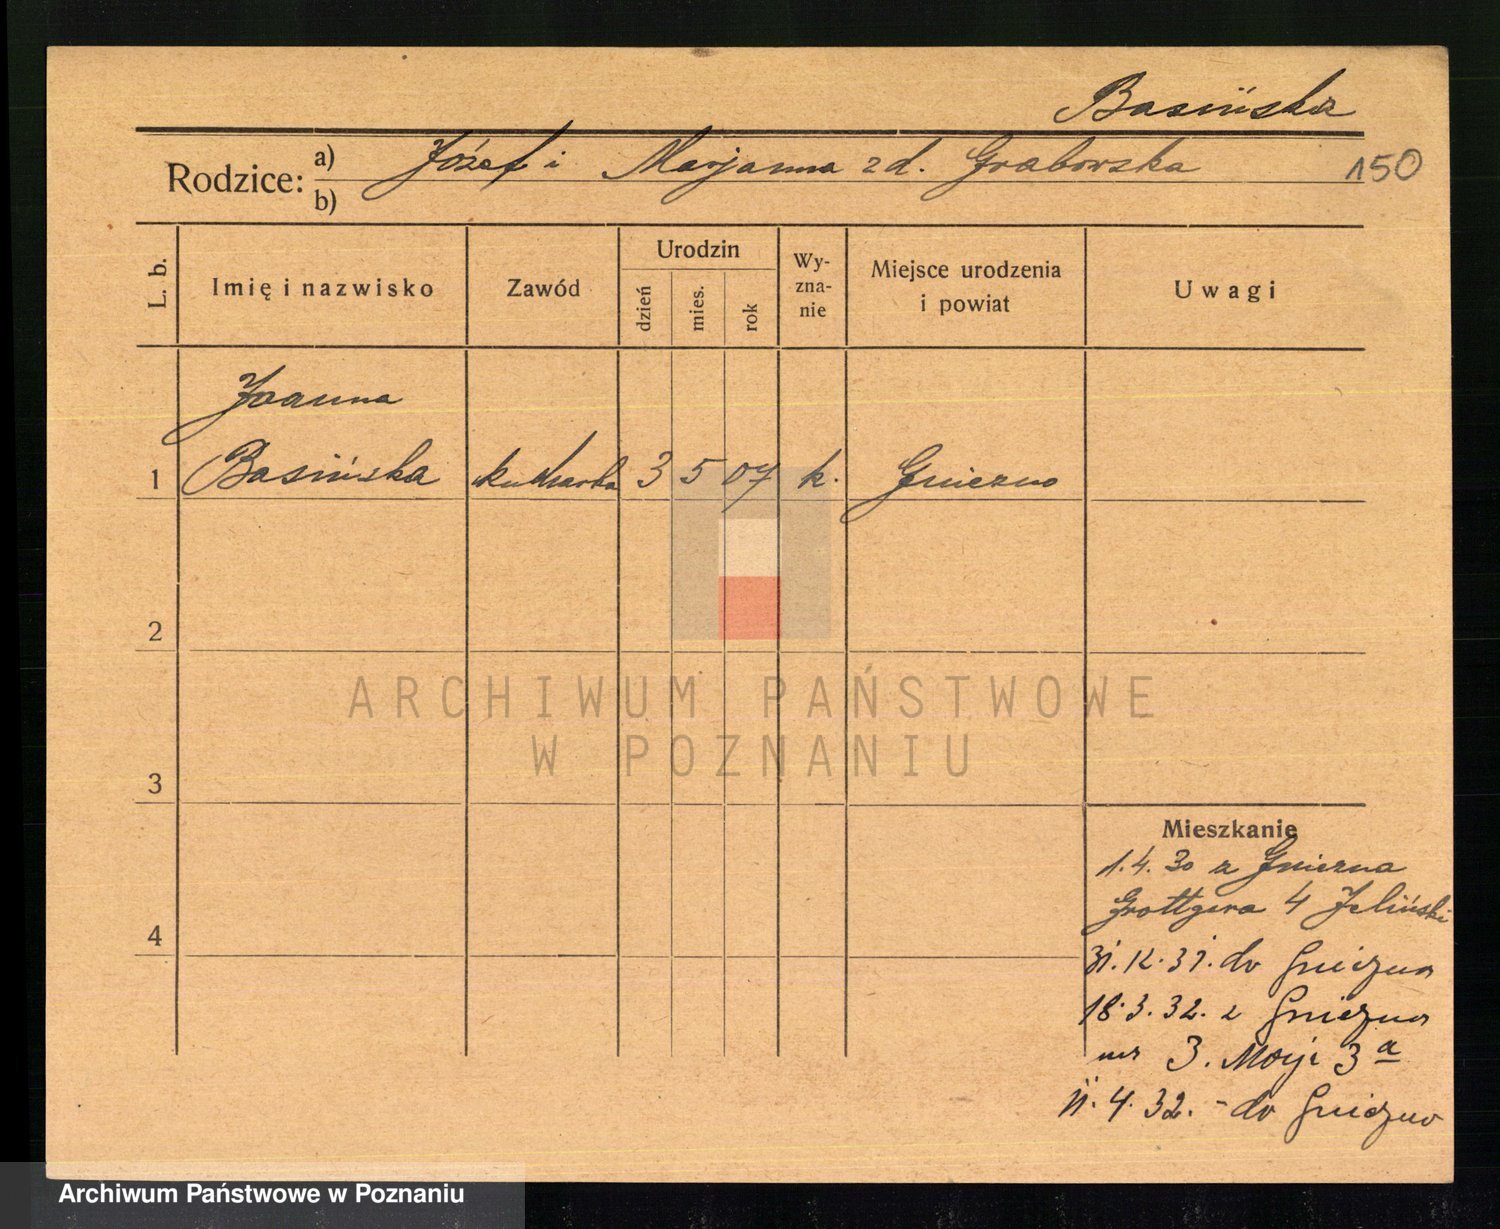 Basińska
Rodzice: a) Józef i Marjanna zd. Grabowska 150
b)
L. b.
Imię i nazwisko
Zawód
Urodzin
dzień
mies.
rok
Wy-
zna-
nie
Miejsce urodzenia
i powiat
Uwagi
Joanna
1 Basińska kucharka 3 5 07 k. Gniezno
2
ARCHIWUM PAŃSTWOWE
W POZNANIU
3
Mieszkanie
1.4.30 z Gniezna
Grottgera 4 Jeliński
4
31.12.31. do Gniezna
18.3.32. z Gniezna
na 3. Maja 3a
11.4.32. - do Gniezno
Archiwum Państwowe w Poznaniu